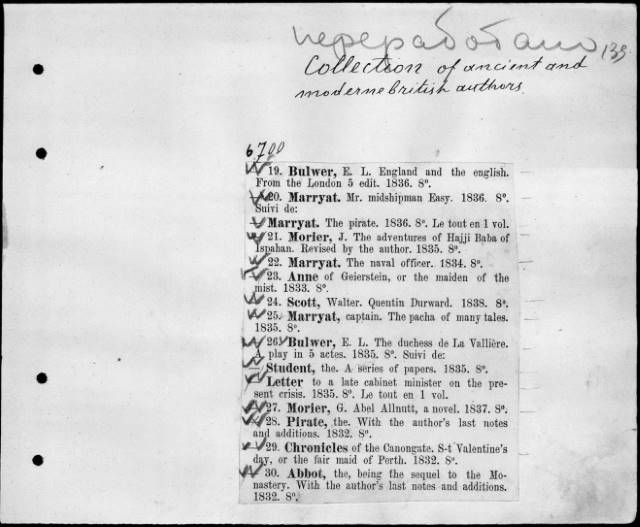 переработано
139
Collection of ancient and
moderne british authors.
6700
19. Bulwer, E. L. England and the english.
From the London 5 edit. 1836. 8°.
20. Marryat. Mr. midshipman Easy. 1836. 8°.
Suivi de:
Marryat. The pirate. 1836. 8°. Le tout en 1 vol.
21. Morier, J. The adventures of Hajji Baba of
Ispahan. Revised by the author. 1835. 8°.
22. Marryat. The naval officer. 1834. 8°.
23. Anne of Geierstein, or the maiden of the
mist. 1833. 8°.
24. Scott, Walter. Quentin Durward. 1838. 8°.
25. Marryat, captain. The pacha of many tales.
1835. 8°.
26. Bulwer, E. L. The duchess de La Vallière.
A play in 5 actes. 1835. 8°. Suivi de:
Student, the. A series of papers. 1835. 8°.
Letter to a late cabinet minister on the pre-
sent crisis. 1835. 8°. Le tout en 1 vol.
27. Morier, G. Abel Allnutt, a novel. 1837. 8°.
28. Pirate, the. With the author's last notes
and additions. 1832. 8°.
29. Chronicles of the Canongate. S-t Valentine's
day, or the fair maid of Perth. 1832. 8°.
30. Abbot, the, being the sequel to the Mo-
nastery. With the author's last notes and additions.
1832. 8°.